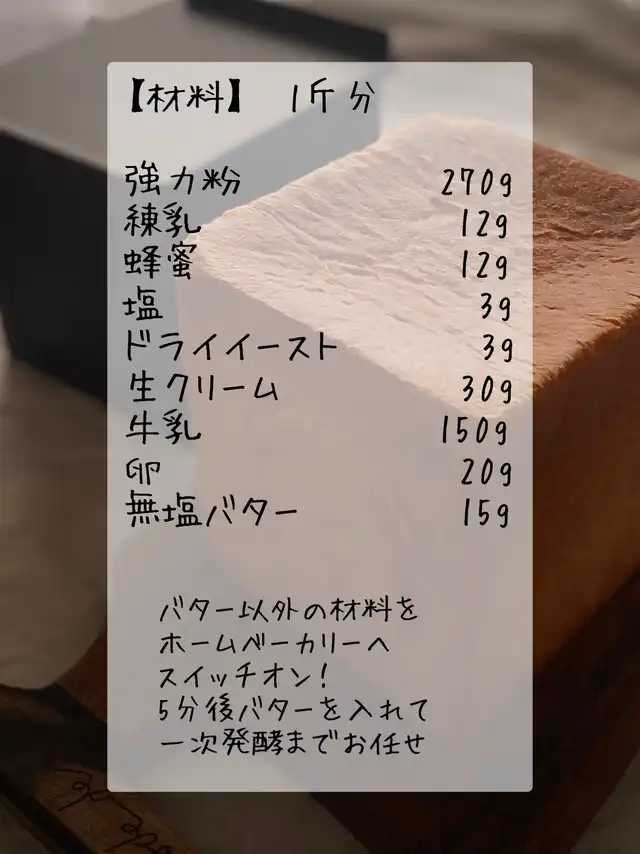 【材料】 1斤分
強力粉 270g
練乳 12g
蜂蜜 12g
塩 3g
ドライイースト 3g
生クリーム 30g
牛乳 150g
卵 20g
無塩バター 15g
バター以外の材料を
ホームベーカリーへ
スイッチオン!
5分後バターを入れて
一次発酵までお任せ